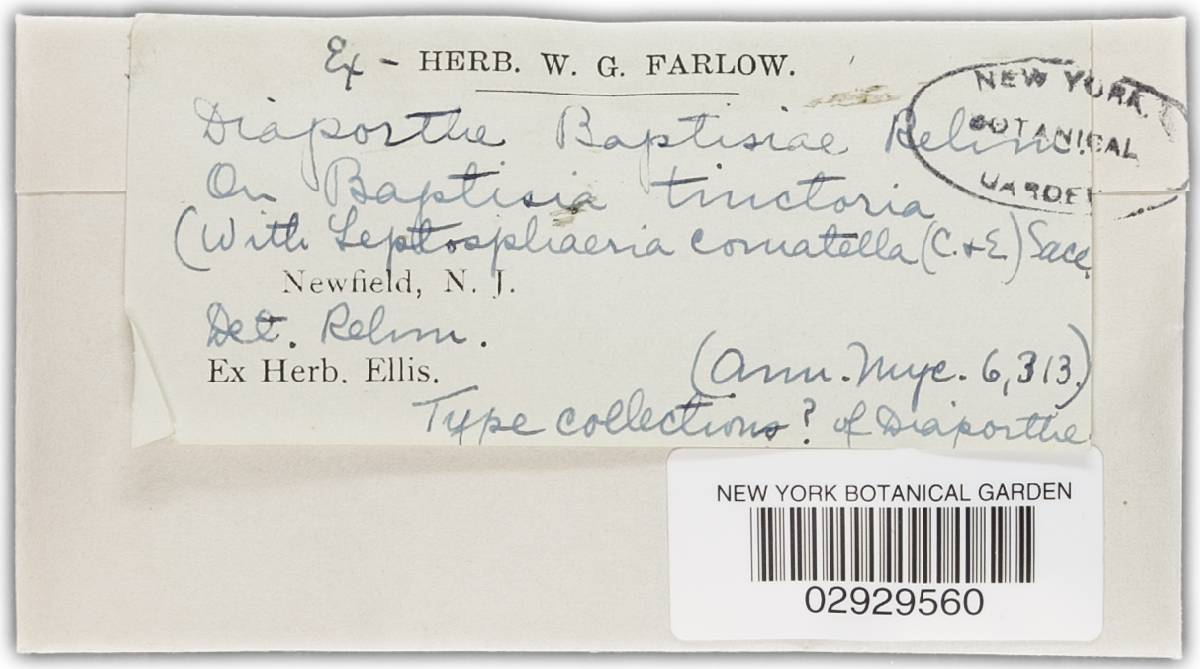 Ex - HERB. W. G. FARLOW.
NEW YORK
BOTANICAL
GARDEN
Diaporthe Baptisiae Rehm.
On Baptisia tinctoria
(With Leptosphaeria comatella (C.&E.) Sacc.
Newfield, N. J.
Det. Rehm.
Ex Herb. Ellis.
(Ann. Myc. 6, 313.)
Type collections? of Diaporthe
NEW YORK BOTANICAL GARDEN
02929560